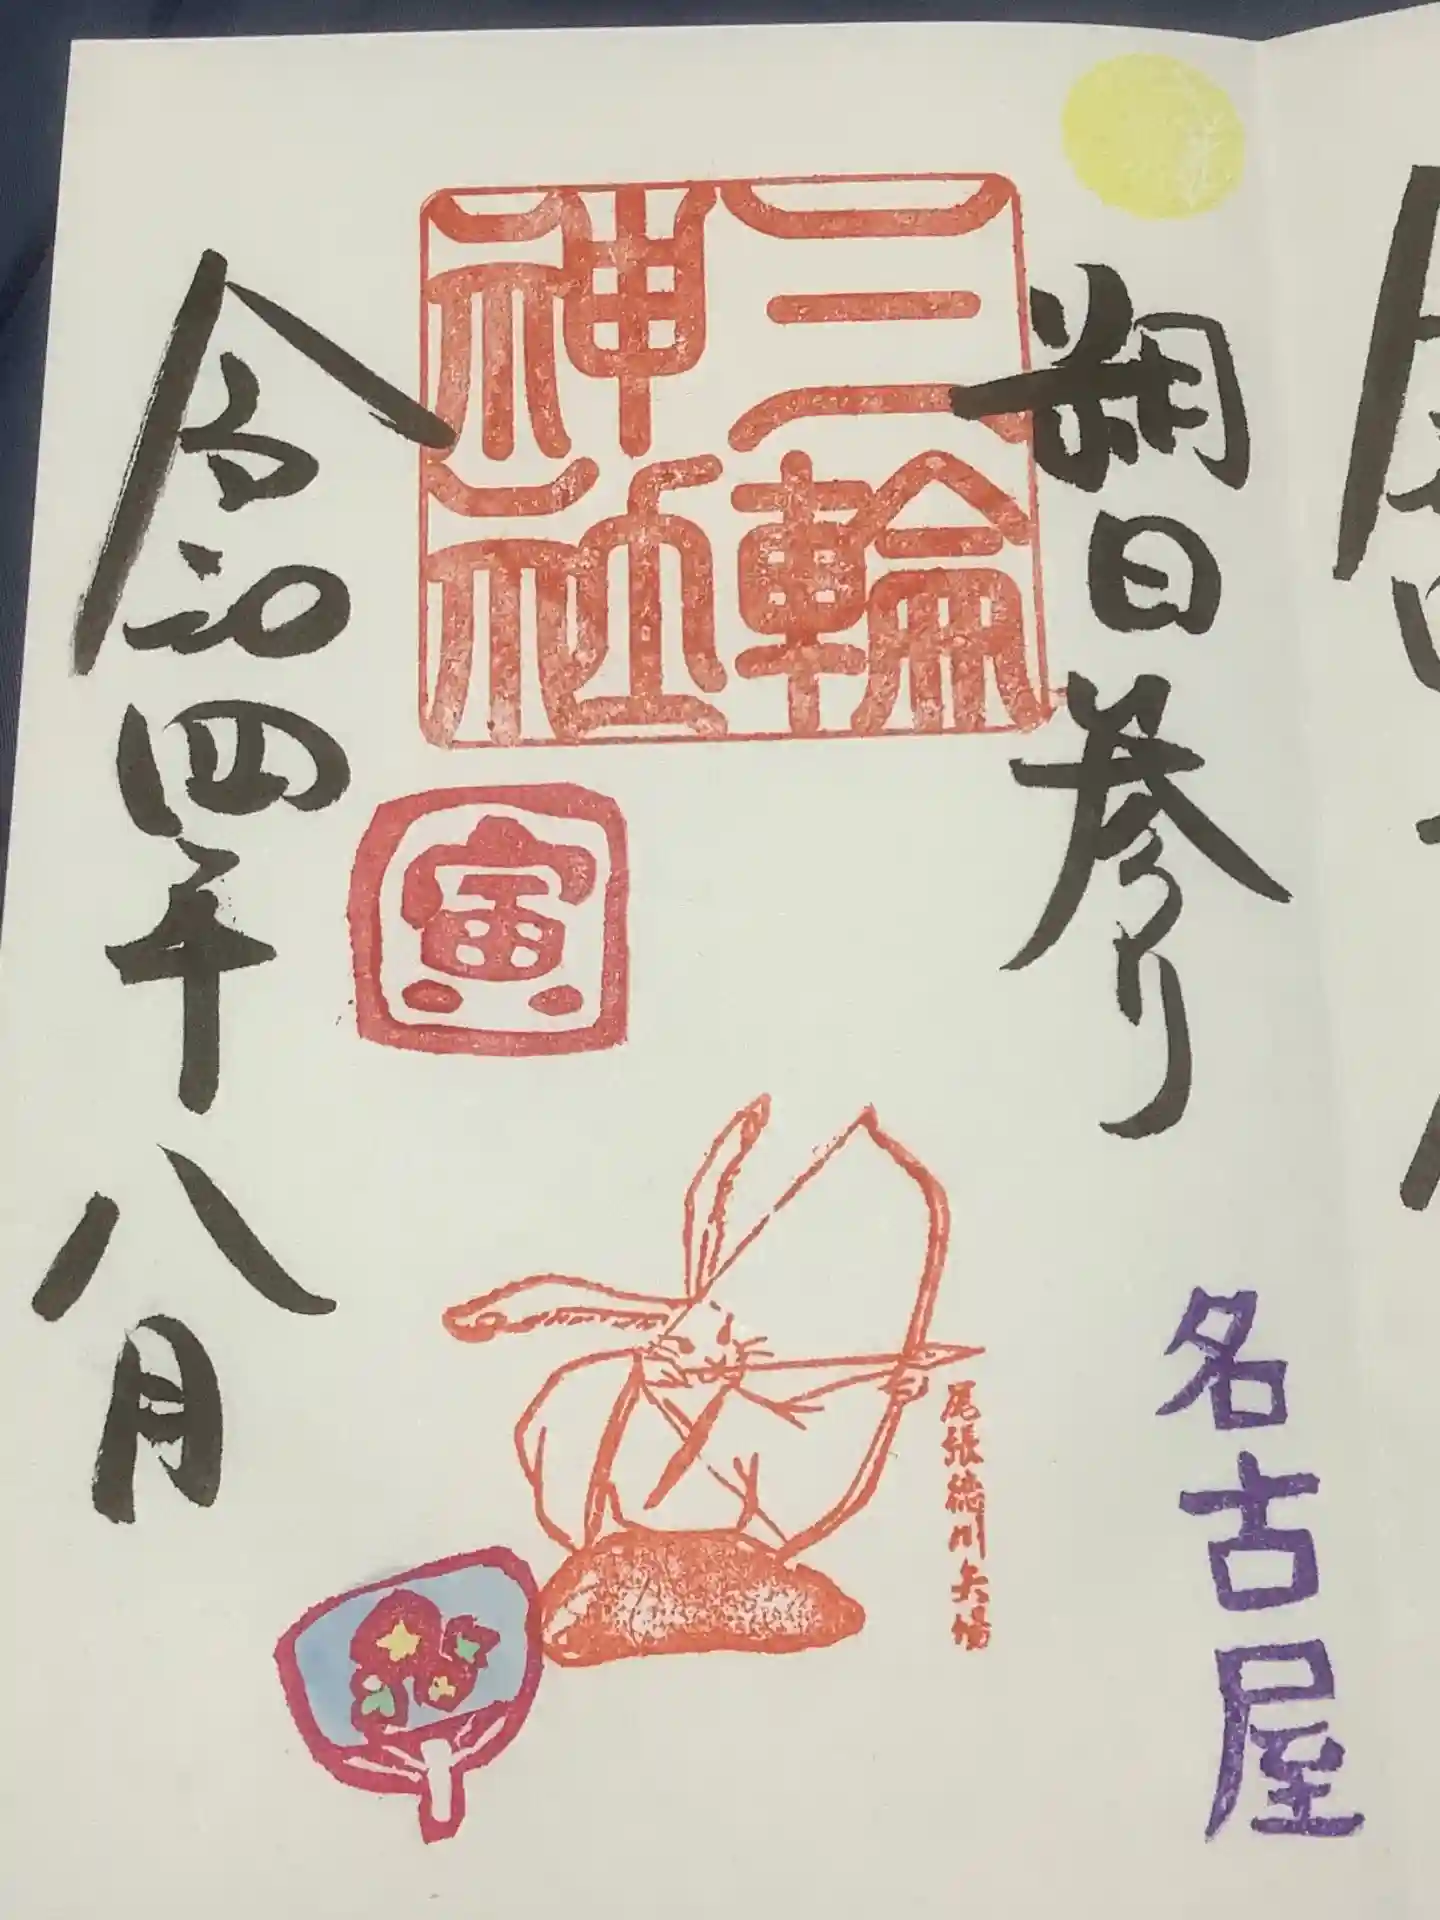 朔日参り
名古屋
三輪
神社
寅
尾張徳川矢場
令和四年八月